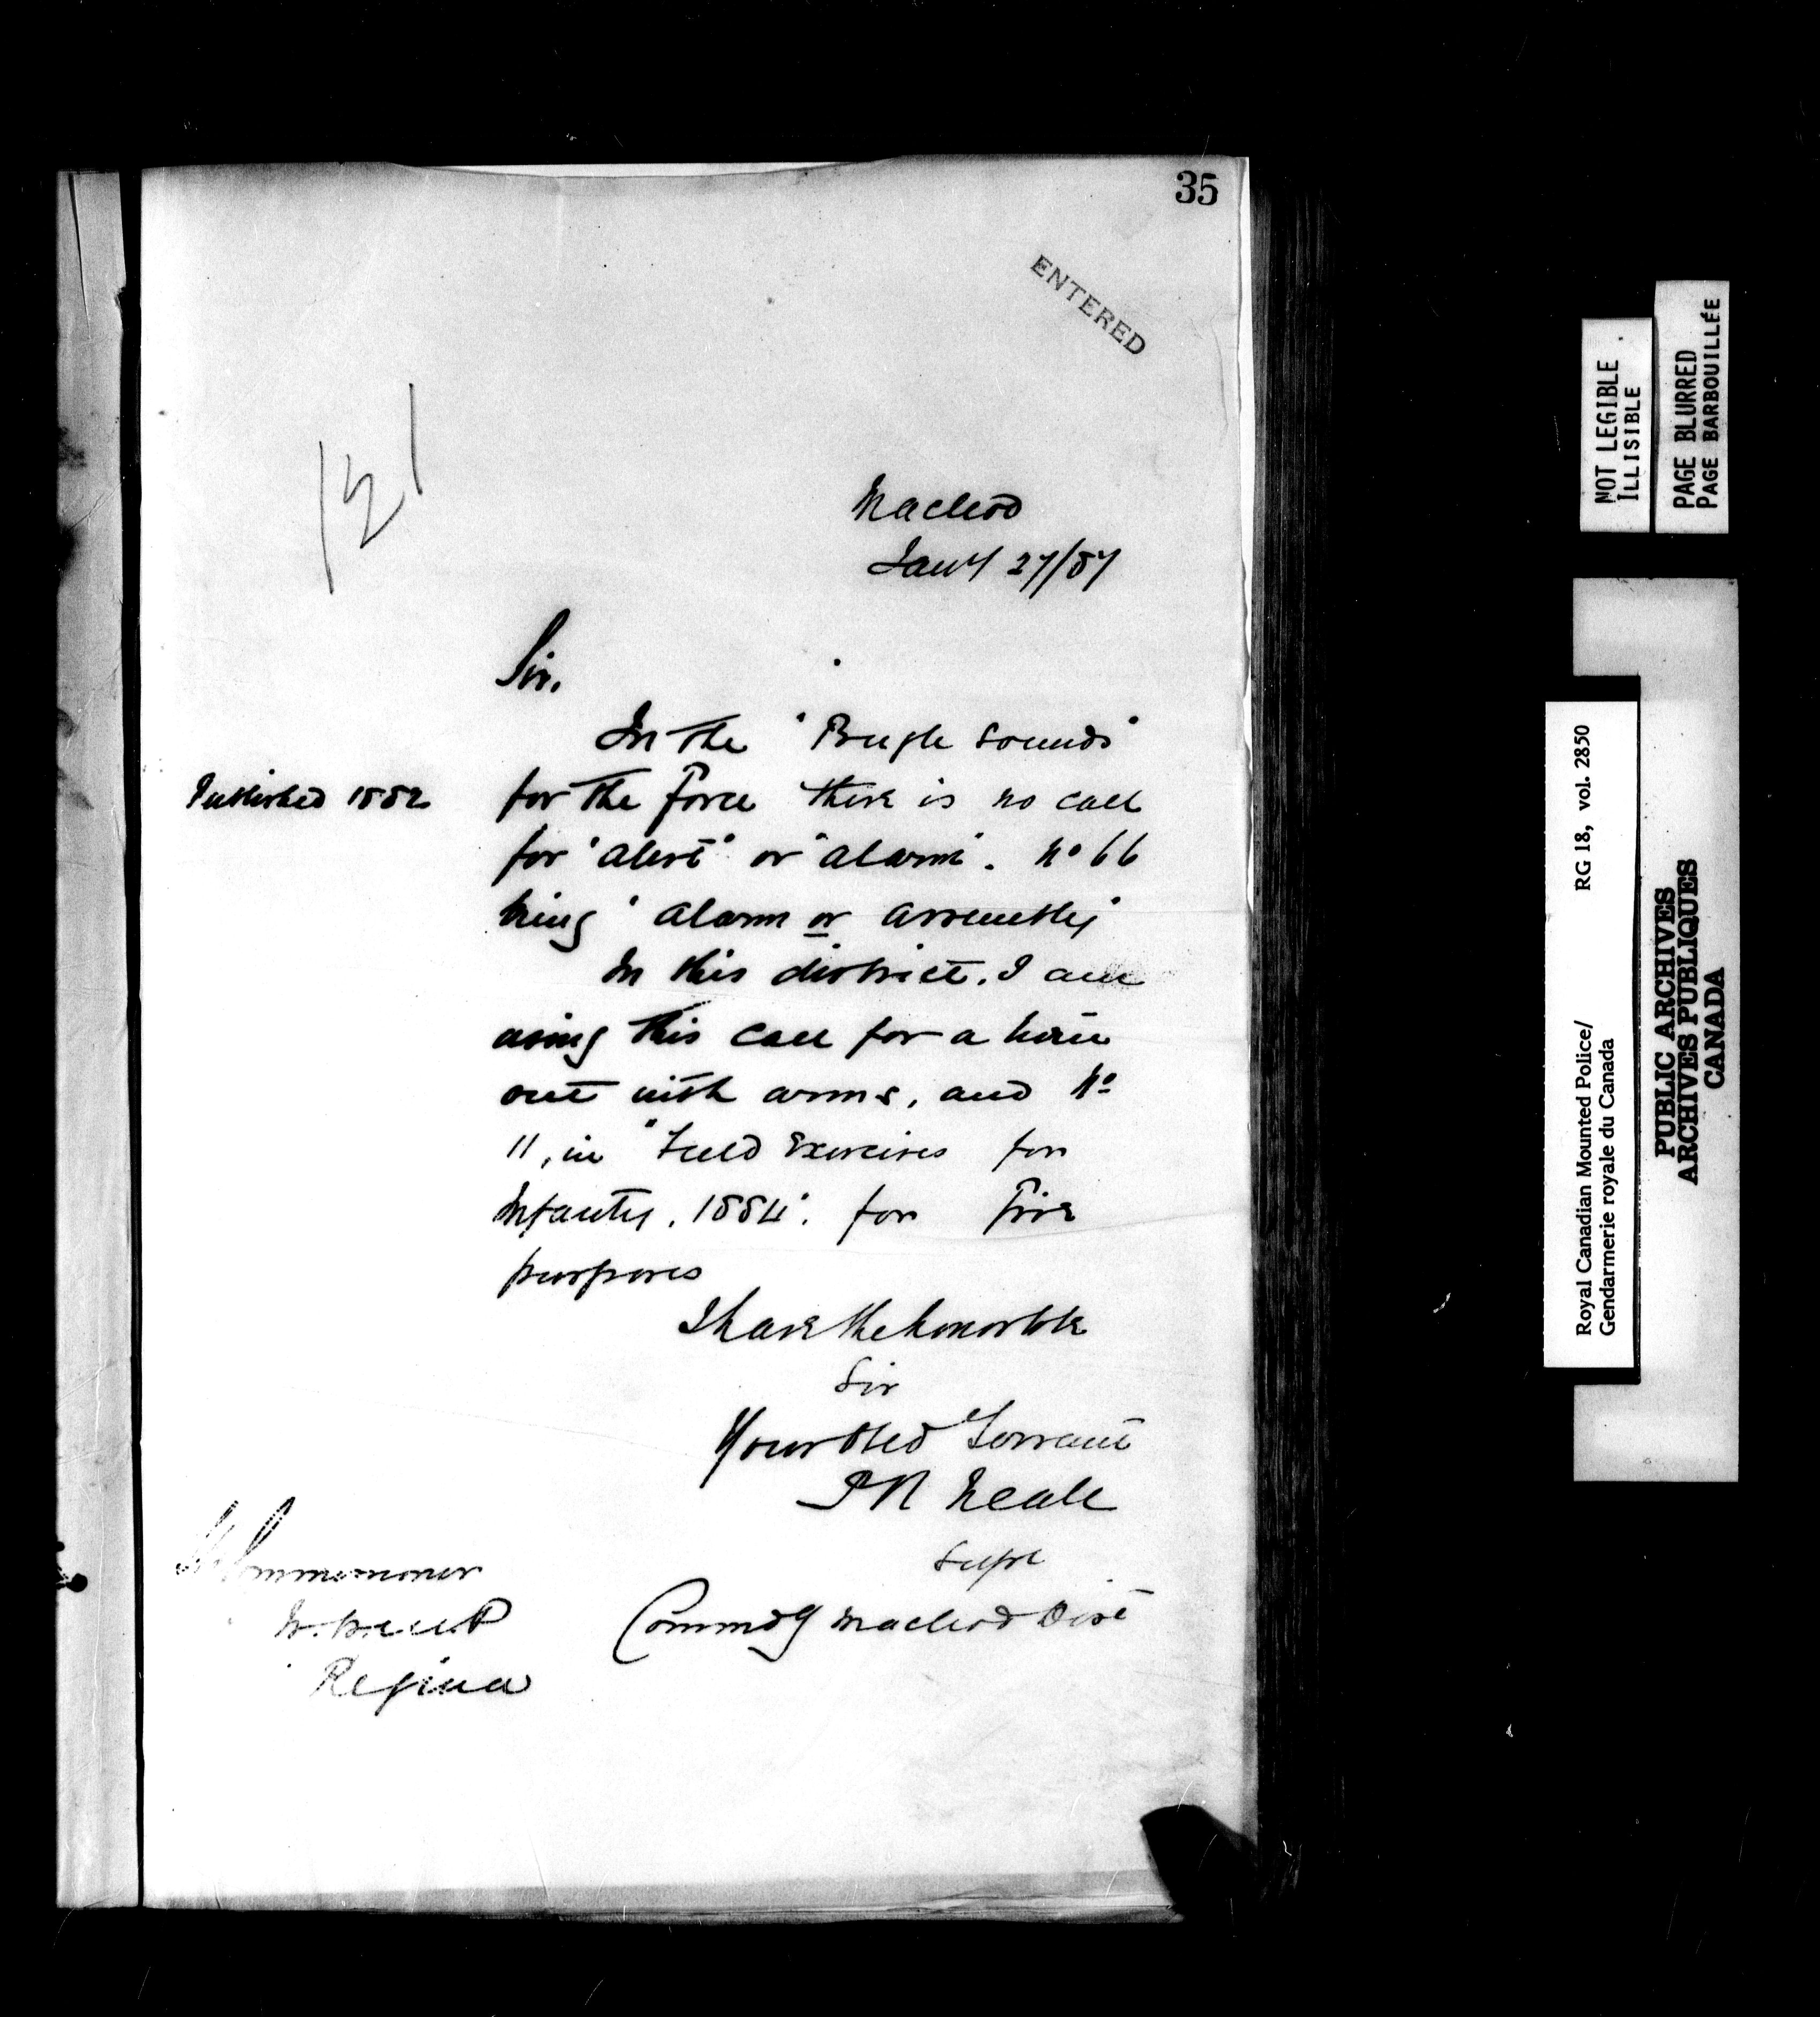 35
ENTERED
121
Macleod
Jany 27/87
Sir,
In the "Bugle Sounds"
Published 1882
for the Force there is no call
for "Alert" or "Alarm". No 66
being "Alarm or Assembly"
In this district, I am
using this call for a turn
out with arms, and No
11, in "Field Exercises for
Infantry, 1884". for Fire
purposes
I have the honor to be
Sir
Your Obed Servant
P R Neale
Supt
Commdg Macleod Dist
The Commissioner
N.W.M.P
Regina
NOT LEGIBLE
ILLISIBLE
PAGE BLURRED
PAGE BARBOUILLÉE
RG 18, vol. 2850
Royal Canadian Mounted Police/
Gendarmerie royale du Canada
PUBLIC ARCHIVES
ARCHIVES PUBLIQUES
CANADA